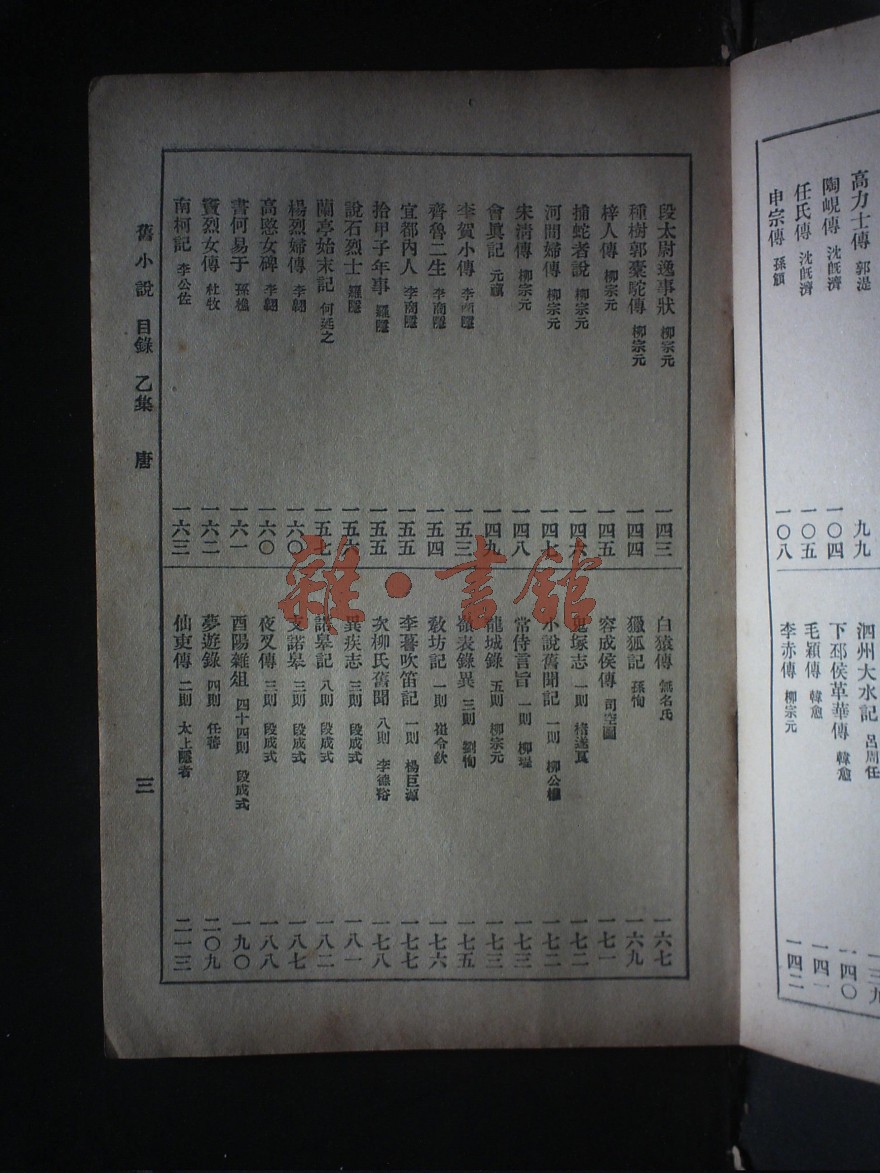 高力士傳 郭湜 九九
陶峴傳 沈旣濟 一〇四
任氏傳 沈旣濟 一〇五
申宗傳 孫頠 一〇八
泗州大水記 呂周任 一三九
下邳侯革華傳 韓愈 一四〇
毛穎傳 韓愈 一四一
李赤傳 柳宗元 一四二
段太尉逸事狀 柳宗元 一四三
種樹郭橐駝傳 柳宗元 一四四
梓人傳 柳宗元 一四五
捕蛇者說 柳宗元 一四六
河間婦傳 柳宗元 一四七
宋淸傳 柳宗元 一四八
會眞記 元稹 一四九
李賀小傳 李商隱 一五三
齊魯二生 李商隱 一五四
宜都內人 李商隱 一五五
拾甲子年事 羅隱 一五五
說石烈士 羅隱 一五六
蘭亭始末記 何延之 一五七
楊烈婦傳 李翶 一六〇
高愍女碑 李翶 一六〇
書何易于 孫樵 一六一
竇烈女傳 杜牧 一六二
南柯記 李公佐 一六三
白猿傳 無名氏 一六七
獵狐記 孫恂 一六九
容成侯傳 司空圖 一七一
鬼塚志 一則 褚遂良 一七二
小說舊聞記 一則 柳公權 一七二
常侍言旨 一則 柳珵 一七三
龍城錄 五則 柳宗元 一七三
嶺表錄異 三則 劉恂 一七五
敎坊記 一則 崔令欽 一七六
李謩吹笛記 一則 楊巨源 一七七
次柳氏舊聞 八則 李德裕 一七八
異疾志 三則 段成式 一八一
諾皋記 八則 段成式 一八二
支諾皋 三則 段成式 一八七
夜叉傳 三則 段成式 一八八
酉陽雜俎 四十四則 段成式 一九〇
夢遊錄 四則 任蕃 二〇九
仙吏傳 二則 太上隱者 二一三
舊小說 目錄 乙集 唐 三
雜·書館